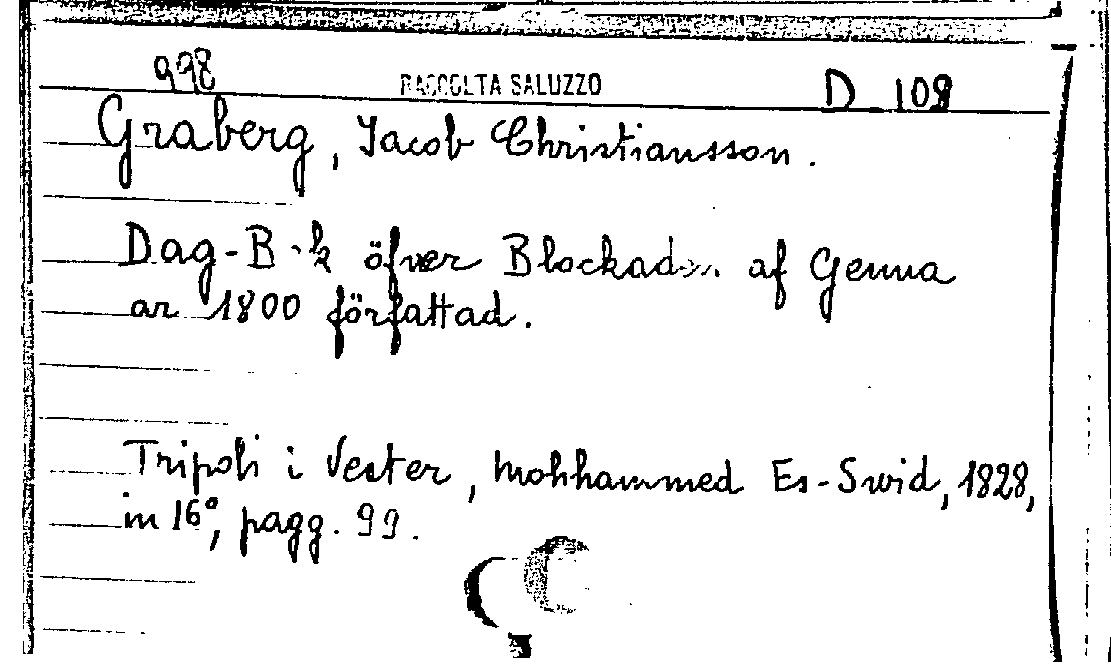 998 RACCOLTA SALUZZO D 108
Graberg, Jacob Christiansson.
Dag-B k öfver Blockaden af Genua
ar 1800 författad.
Tripoli i Vester, Mohhammed Es-Swid, 1828,
in 16°, pagg. 99.